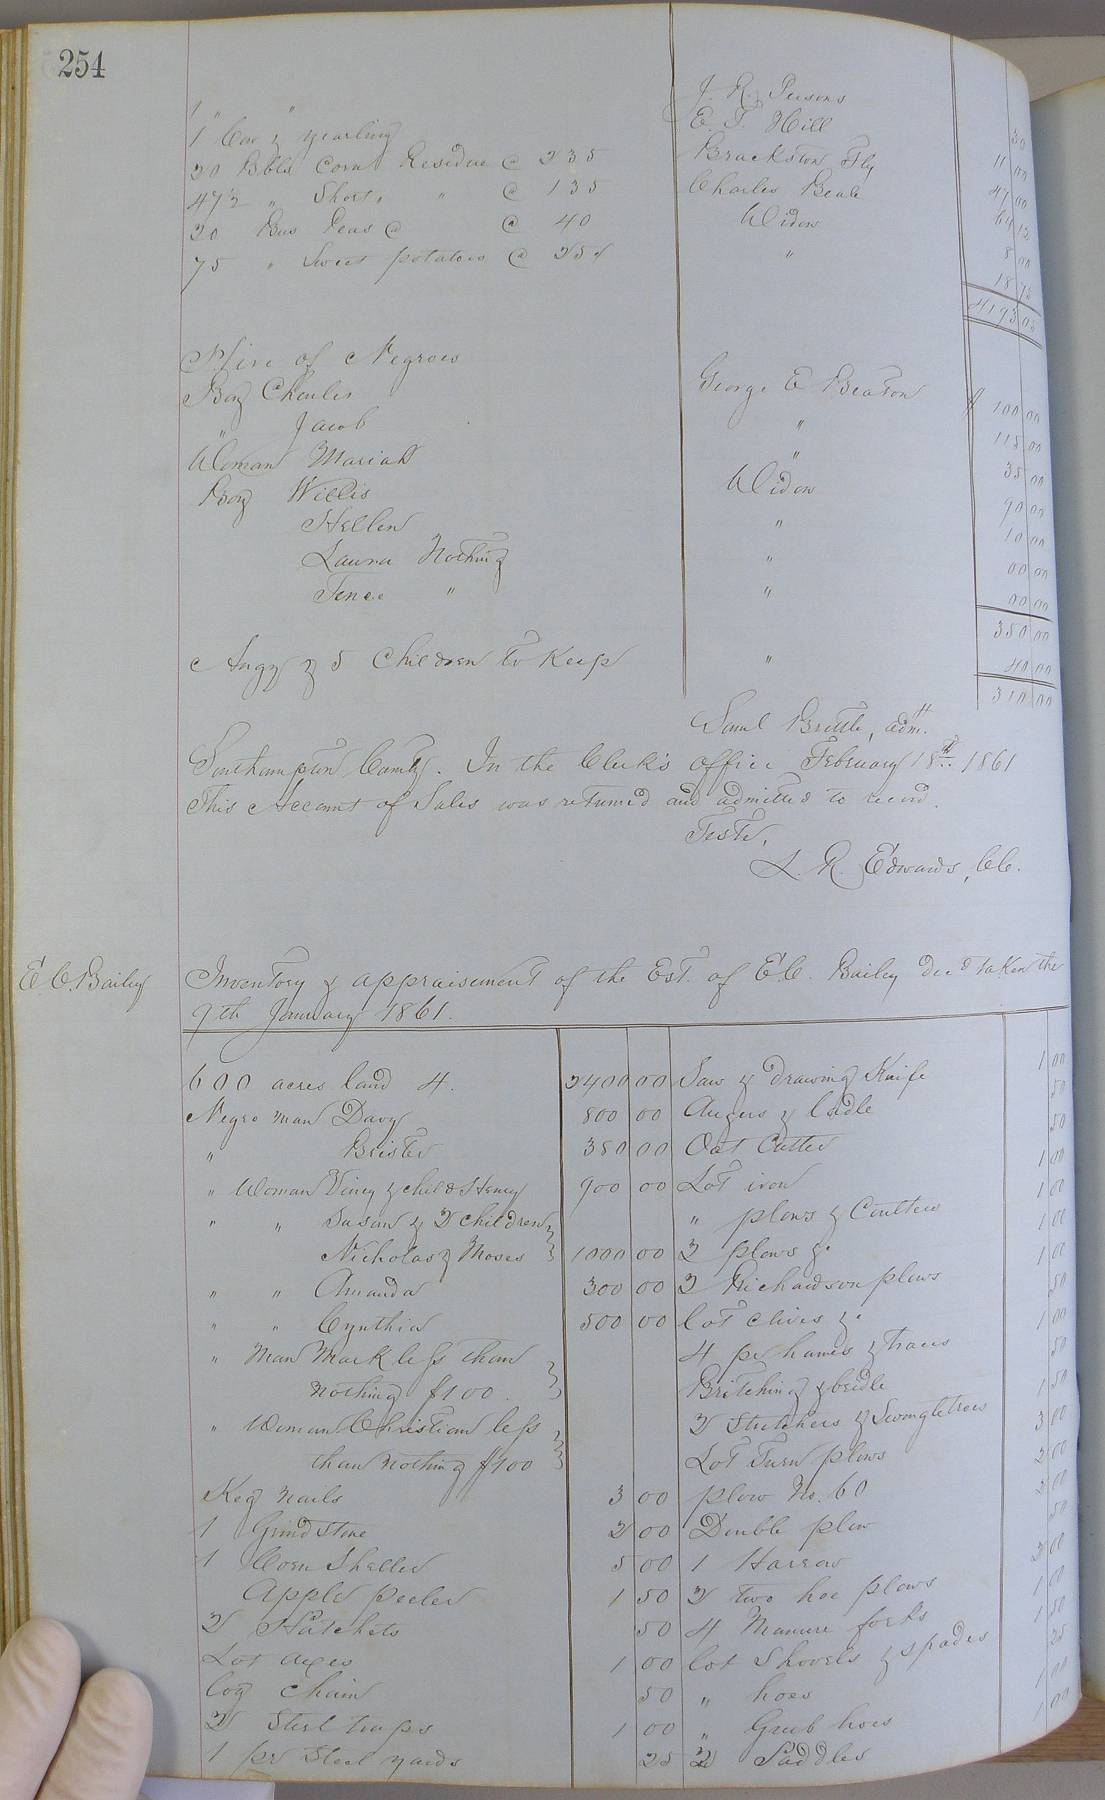 254
1 " " J. R. Persons 30
1 Cow & yearling E. T. Hill 11 00
20 Bbls Corn Residue @ 235 Brackston Fly 47 00
47½ " Short " @ 135 Charles Beale 64 12
20 Bus Peas @ @ 40 Widow 8 00
75 " Sweet potatoes @ 25¢ " 18 75
4193 02
Hire of Negroes
Boy Charles George E Beaton $ 100 00
" Jacob " 115 00
Woman Mariah " 35 00
Boy Willis Widow 90 00
Hellen " 10 00
Laura Nothing " 00 00
Fence " " 00 00
350 00
Angy & 5 Children to Keep " 40 00
310 00
Saml Brittle, adm.
Southampton County. In the Clerk's office February 18th 1861
This Account of Sales was returned and admitted to record.
Teste,
L. R. Edwards, CC.
E. C. Bailey
Inventory & appraisement of the Est. of E. C. Bailey dec'd taken the
9th January 1861.
600 acres land 4. 2400 00 Saw & drawing Knife 1 00
Negro man Davy 800 00 Augers & Cadle 50
" Brister 350 00 Oat Cutter 50
" Woman Viney & child Henry 900 00 Lot iron 1 00
" " Susan & 2 children " plows & Coulters 1 00
Nicholas & Moses 1000 00 2 plows &. 1 00
" " Amanda 300 00 2 Richardson plows 1 00
" " Cynthia 500 00 Lot clives &. 50
" Man Mark less than 4 pr hames & traces 1 00
nothing $100. Britching & bridle 50
" Woman Christian less 2 Stretchers & Swingletrees 1 50
than nothing $100 Lot Turn plows 3 00
Keg Nails 3 00 plow No. 60 2 00
1 Grind Stone 2 00 Double plow 2 00
1 Corn Sheller 5 00 1 Harrow 50
Apple peeler 1 50 2 two hoe plows 2 00
2 Hatchets 50 4 Manure forks 1 00
Lot axes 1 00 Lot Shovels & spades 1 50
Log Chain 50 " hoes 25
2 Steel traps 1 00 " Grub hoes 1 00
1 pr Steel yards 25 2 Saddles 1 00